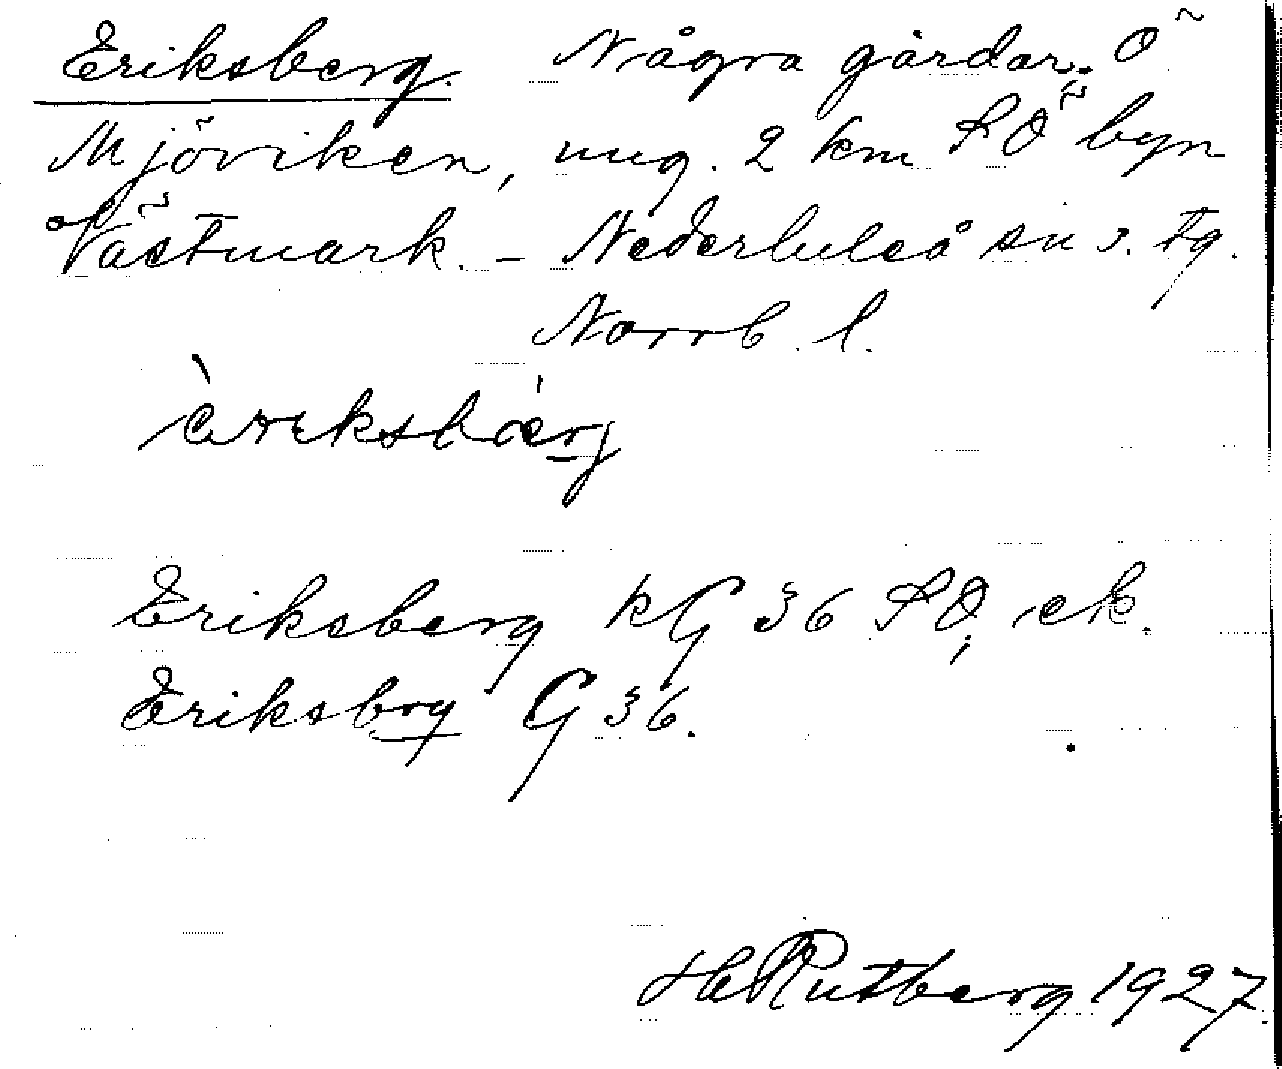 Eriksberg. Några gårdar. Ö
Mjöviken, ung. 2 km SÖ byn
Västmark. – Nederluleå sn s. tg.
Norrb. l.
Eriksberg kG 36 SO, ek.
Eriksbrg G 36.
H Rutberg 1927.